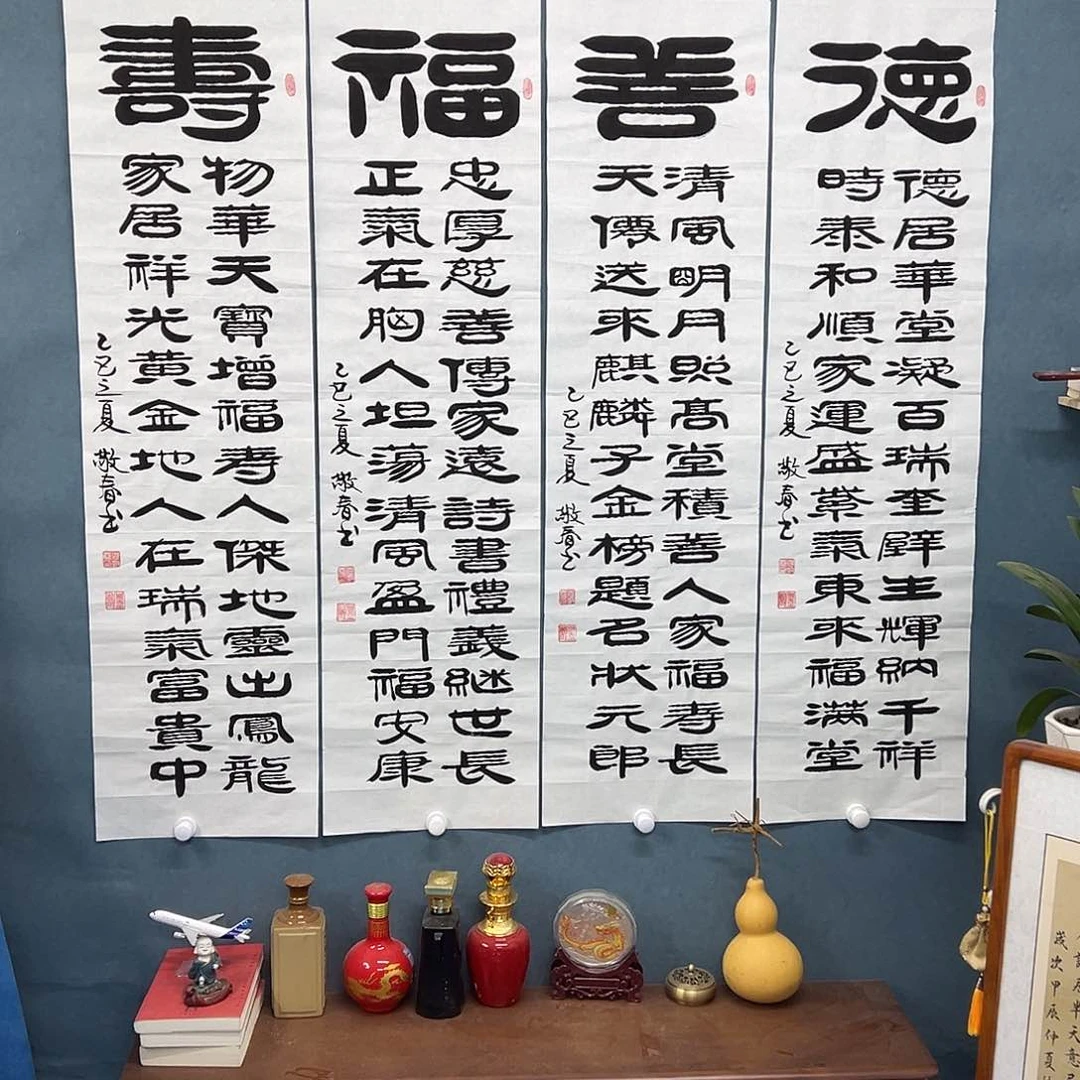 德
德居華堂凝百瑞奎璧生輝納千祥
時泰和順家運盛紫氣東來福滿堂
乙巳之夏 敬春书
善
清風明月照高堂積善人家福壽長
天僊送來麒麟子金榜題名狀元郎
乙巳之夏 敬春书
福
忠厚慈善傳家遠詩書禮義継世長
正氣在胸人坦蕩清風盈門福安康
乙巳之夏 敬春书
壽
物華天寶增福壽人傑地靈出鳳龍
家居祥光黃金地人在瑞氣富貴中
乙巳之夏 敬春书
歲次甲辰仲夏